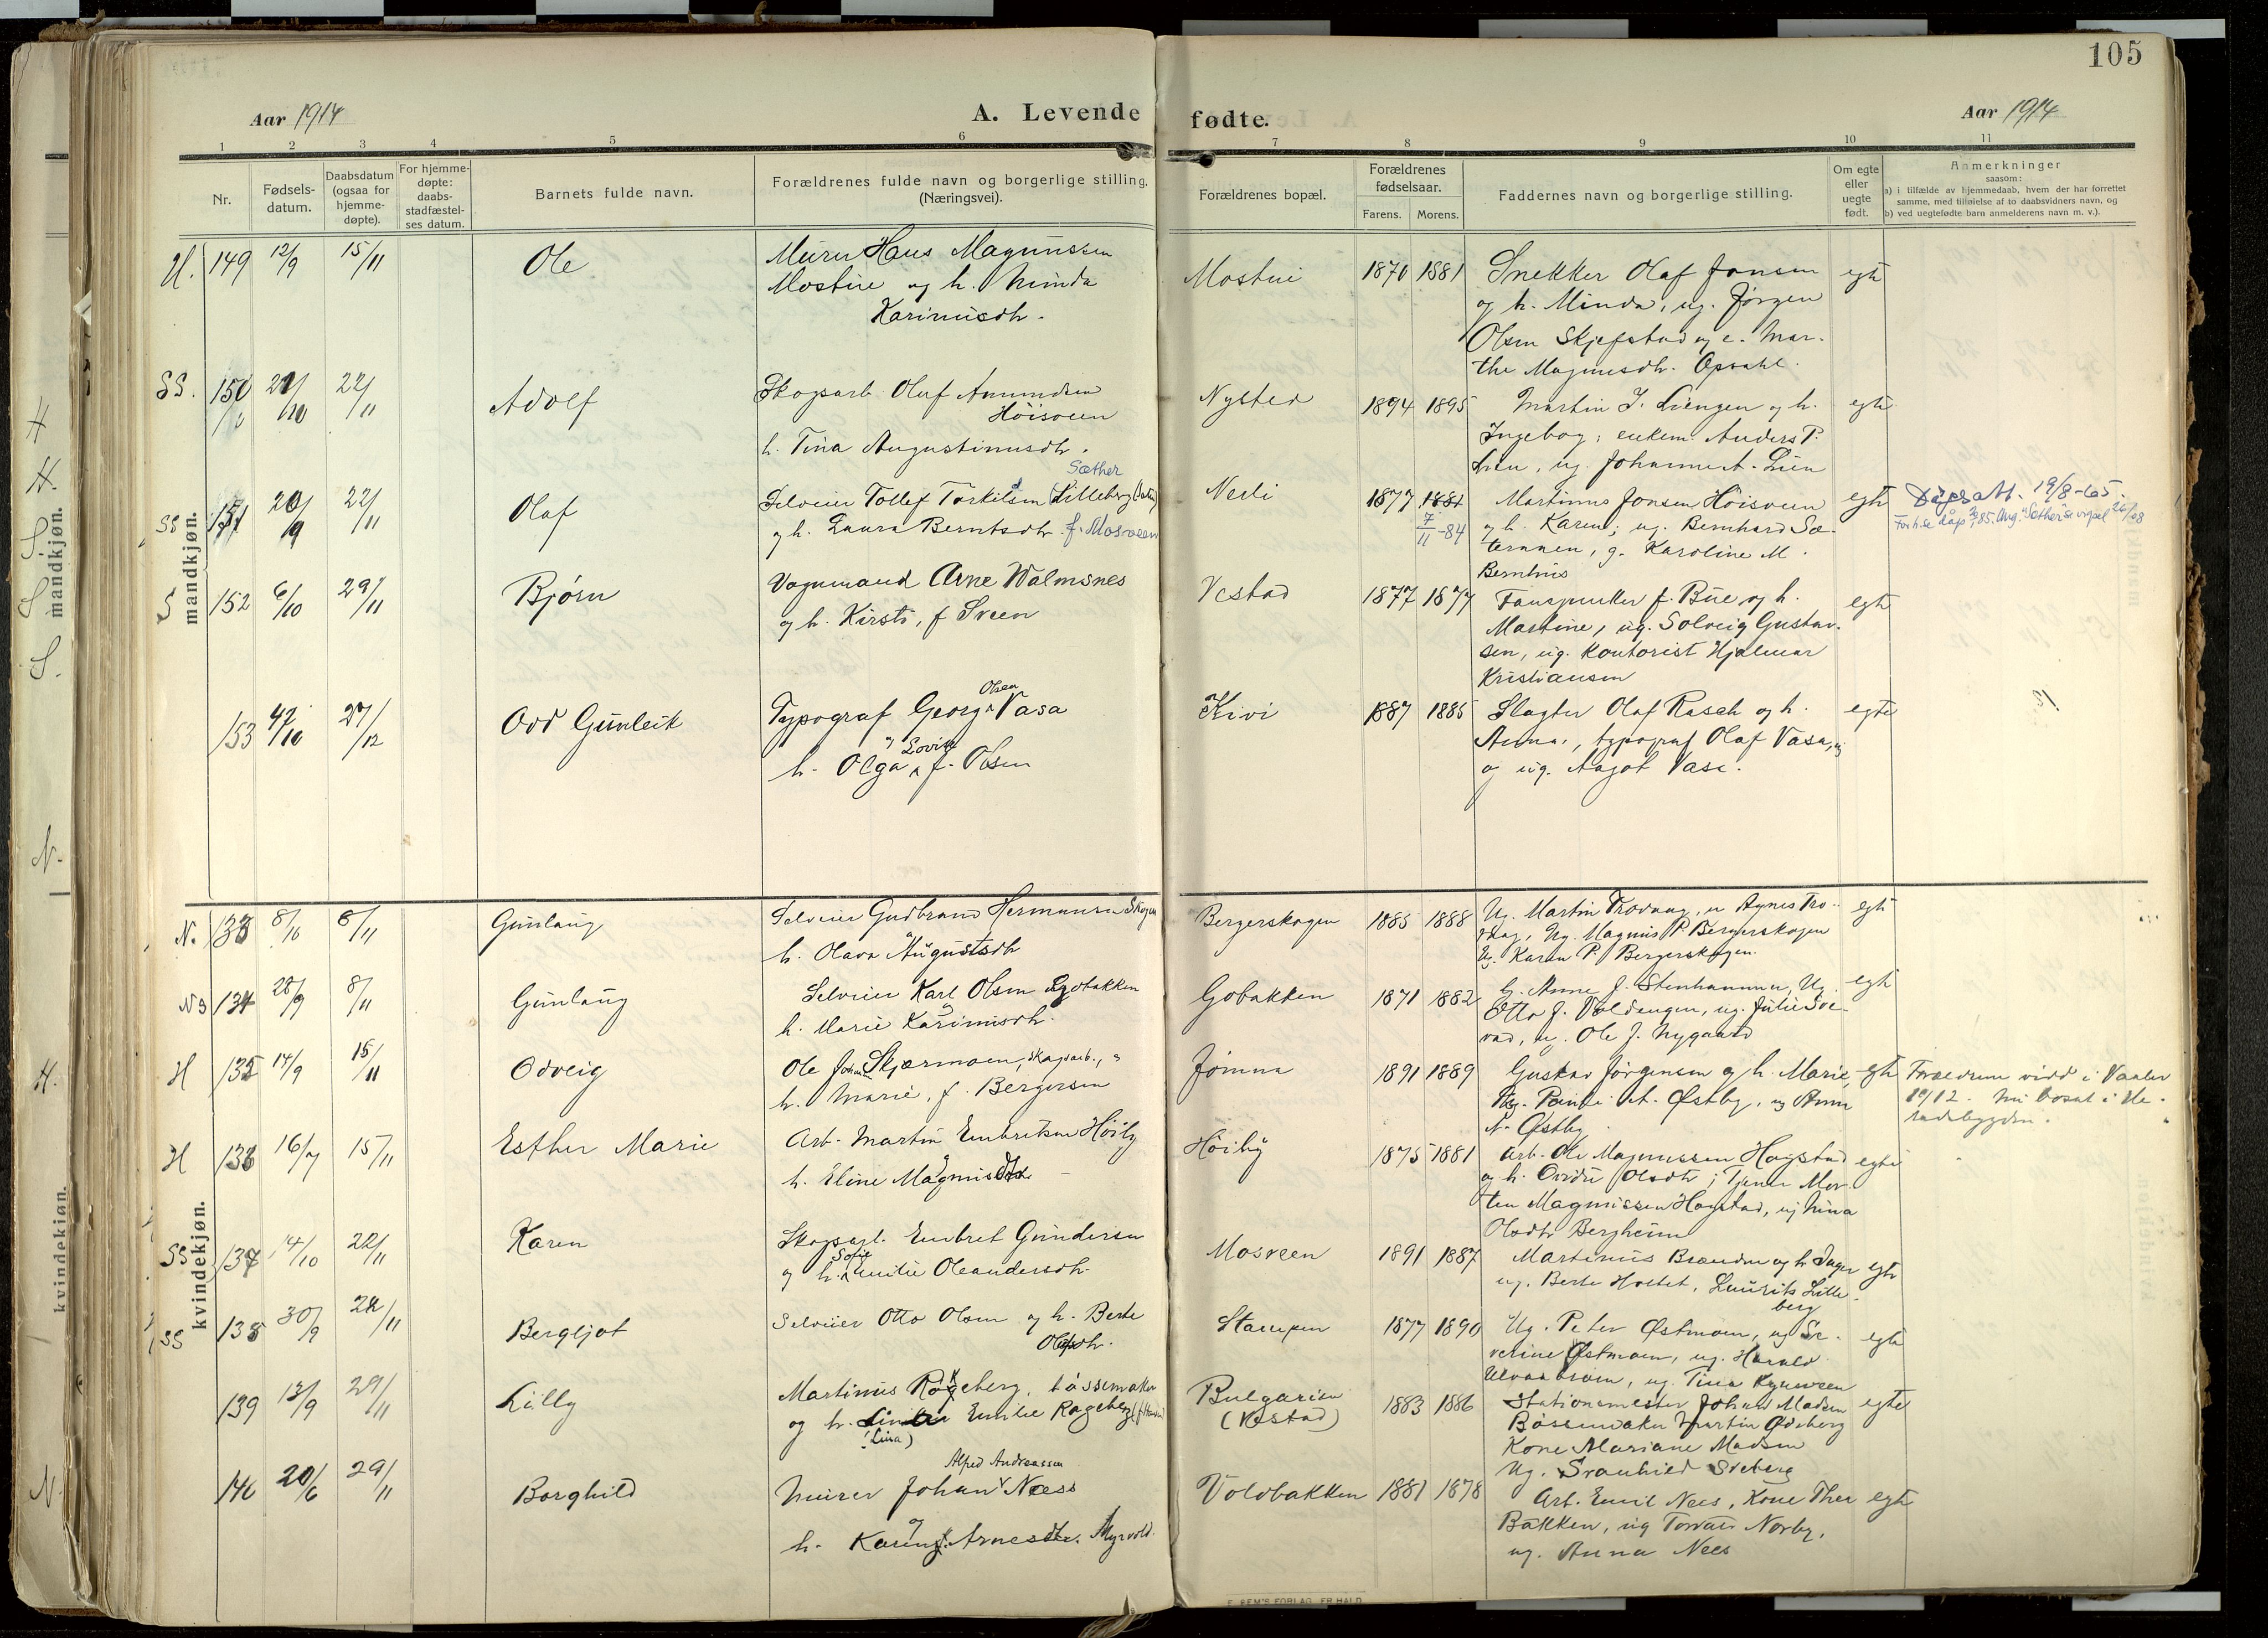 105
Aar 1914
A. Levende
fødte.
Aar 1914
1 2 3 4 5 6 7 8 9 10 11
Nr.
Fødsels-
datum.
Daabsdatum
(ogsaa for
hjemme-
døpte).
For hjemme-
døpte:
daabs-
stadfæstel-
ses datum.
Barnets fulde navn.
Forældrenes fulde navn og borgerlige stilling.
(Næringsvei).
Forældrenes bopæl.
Forældrenes
fødselsaar.
Farens. Morens.
Faddernes navn og borgerlige stilling.
Om egte
eller
uegte
født.
Anmerkninger
saasom:
a) i tilfælde av hjemmedaab, hvem der har forrettet
samme, med tilføielse af to daabsvidners navn, og
b) ved uegtefødte barn anmelderens navn m. v.).
mandkjøn.
H. 149 12/9 15/11 Ole
Murer Hans Magnussen
Mostue og h. Minda
Karinusdtr.
Mostue 1870 1881
Snekker Olaf Jonsen
og h. Minda, ug. Jørgen
Olsen Skjefstad og e. Mar-
the Magnusdtr. Opsahl.
egte
SS. 150 22/11 Adolf
Skogsarb. Oluf Amundsen
Høisveen
h. Tina Augustinusdtr.
Nysted 1894 1895
Martin J. Liengen og h.
Ingebog; enkem. Anders P.
Lien, ug. Johanne A. Lien
egte
SS 151 20/9 22/11 Olaf
Selveier Tollef Torkilsen Lilleberg
Sæther
og h. Laura Berntsdtr. f. Mosveen
Nerli 1877 1881
7/11-84
Martinus Jonsen Høisveen
og h. Karen; ug. Bernhard Sæ-
ternæen, g. Karoline M.
Bernthus
egte
Dåpsatt. 19/8-65.
S 152 6/10 29/11 Bjørn
Vognmand Arne Walmsnes
og h. Kirsti, f Sveen
Vestad 1877 1877
f. Bue og h.
Martine, ug. Solveig Gustav-
sen, ug. Kontorist Hjalmar
Kristiansen
egte
153 27/12 Odd Gunleik
Typograf Georg Olsen Vasa
og Lovise
h. Olga f. Olsen
Kivi 1887 1885
Slagter Olaf Rasch og h.
Anna, typograf Olaf Vasa, ug
og ug. Aagot Vase.
egte
kvindekjøn.
N. 133 8/10 8/11 Gunlaug
Selveier Gudbrand Hermansen Skogen
h. Olava Augustsdtr
Bergerskogen 1885 1888
Ug. Martin Trovaag, u Agnes Tro-
vaag, Ug. Magnus P. Bergerskogen
Ug. Karen P. Bergerskogen.
egte
NS 134 28/9 8/11 Gunlaug
Selveier Karl Olsen Gobakken
h. Marie Karinusdtr.
Gobakken 1871 1882
G. Anne J. Stenhammer, Ug.
Otto J. Voldengen, ug. Julie Sve-
rud, u. Ole J. Nygaard
egte
H 135 14/9 15/11 Odveig
Ole Johan Skjærmoen, skogsarb., og
h. Marie, f. Bergersen
Jømna 1891 1889
Gustav Jørgensen og h. Marie,
A. Østby, ug Anna
N. Østby
egte
Forældrene vied i Vaaler
1912. Nu bosat i He-
radsbygden.
H 136 16/7 15/11 Esther Marie
Arb. Martin Embretsen Høiby
h. Eline Magnusdtr.
Høiby 1875 1881
Arb. Ole Magnussen Hagstad
og h. Ovidie Olsdtr; Tjener Mor-
ten Magnussen Hagstad, ug Nina
Olsdtr Bergheim
egte
SS 137 14/10 22/11 Karen
Skogsarb. Embret Gundersen
Sofie
og h. Emilie Oleandersdtr.
Mosveen 1891 1887
Martinus Brænden og h. Inger
ug. Berte Hostet, Laurits Lille-
berg
egte
SS 138 30/9 22/11 Bergljot
Selveier Otto Olsen og h. Berte
Olsdtr.
Stampen 1877 1890
Ug. Peter Østmoen, ug Se-
verine Østmoen, ug. Harald
Ulvaabroen, ug. Tina Kynsveen
egte
139 13/9 29/11 Lilly
Martinus Rogeberg, bøssemaker
og h. Emilie Rogeberg
(Lina)
Bulgarien
(Vestad)
1883 1886
Stationsmester Johan Madsen
Bøssemaker Martin Ødeberg
Kone Mariane Madsen
Ug. Svanhild Sveberg
egte
140 20/6 29/11 Borghild
Alfred Andreassen
Murer Johan Næss
og
h. Karen Arnesdtr. Myrvold.
Voldbakken 1881 1878
Arb. Emil Nees, Kone Thea
Bakken, ug Torvald Norby,
ug. Anna Nees
egte